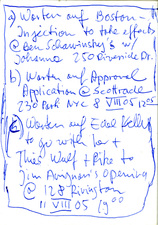 a) Warten auf Boston -
Injection to take effects
@ Ben Schawinsky's w/
Johanna 250 Riverside Dr.
b) Warten auf Approval
Application @ Scottrade
230 Park NYC 8 VIII 05 1205
c) Warten auf Edek Kelly
to go with her +
This Wulf + Piko to
Jim Avignon's Opening
@ 128 Rivington
11 VIII 05 19⁰⁰